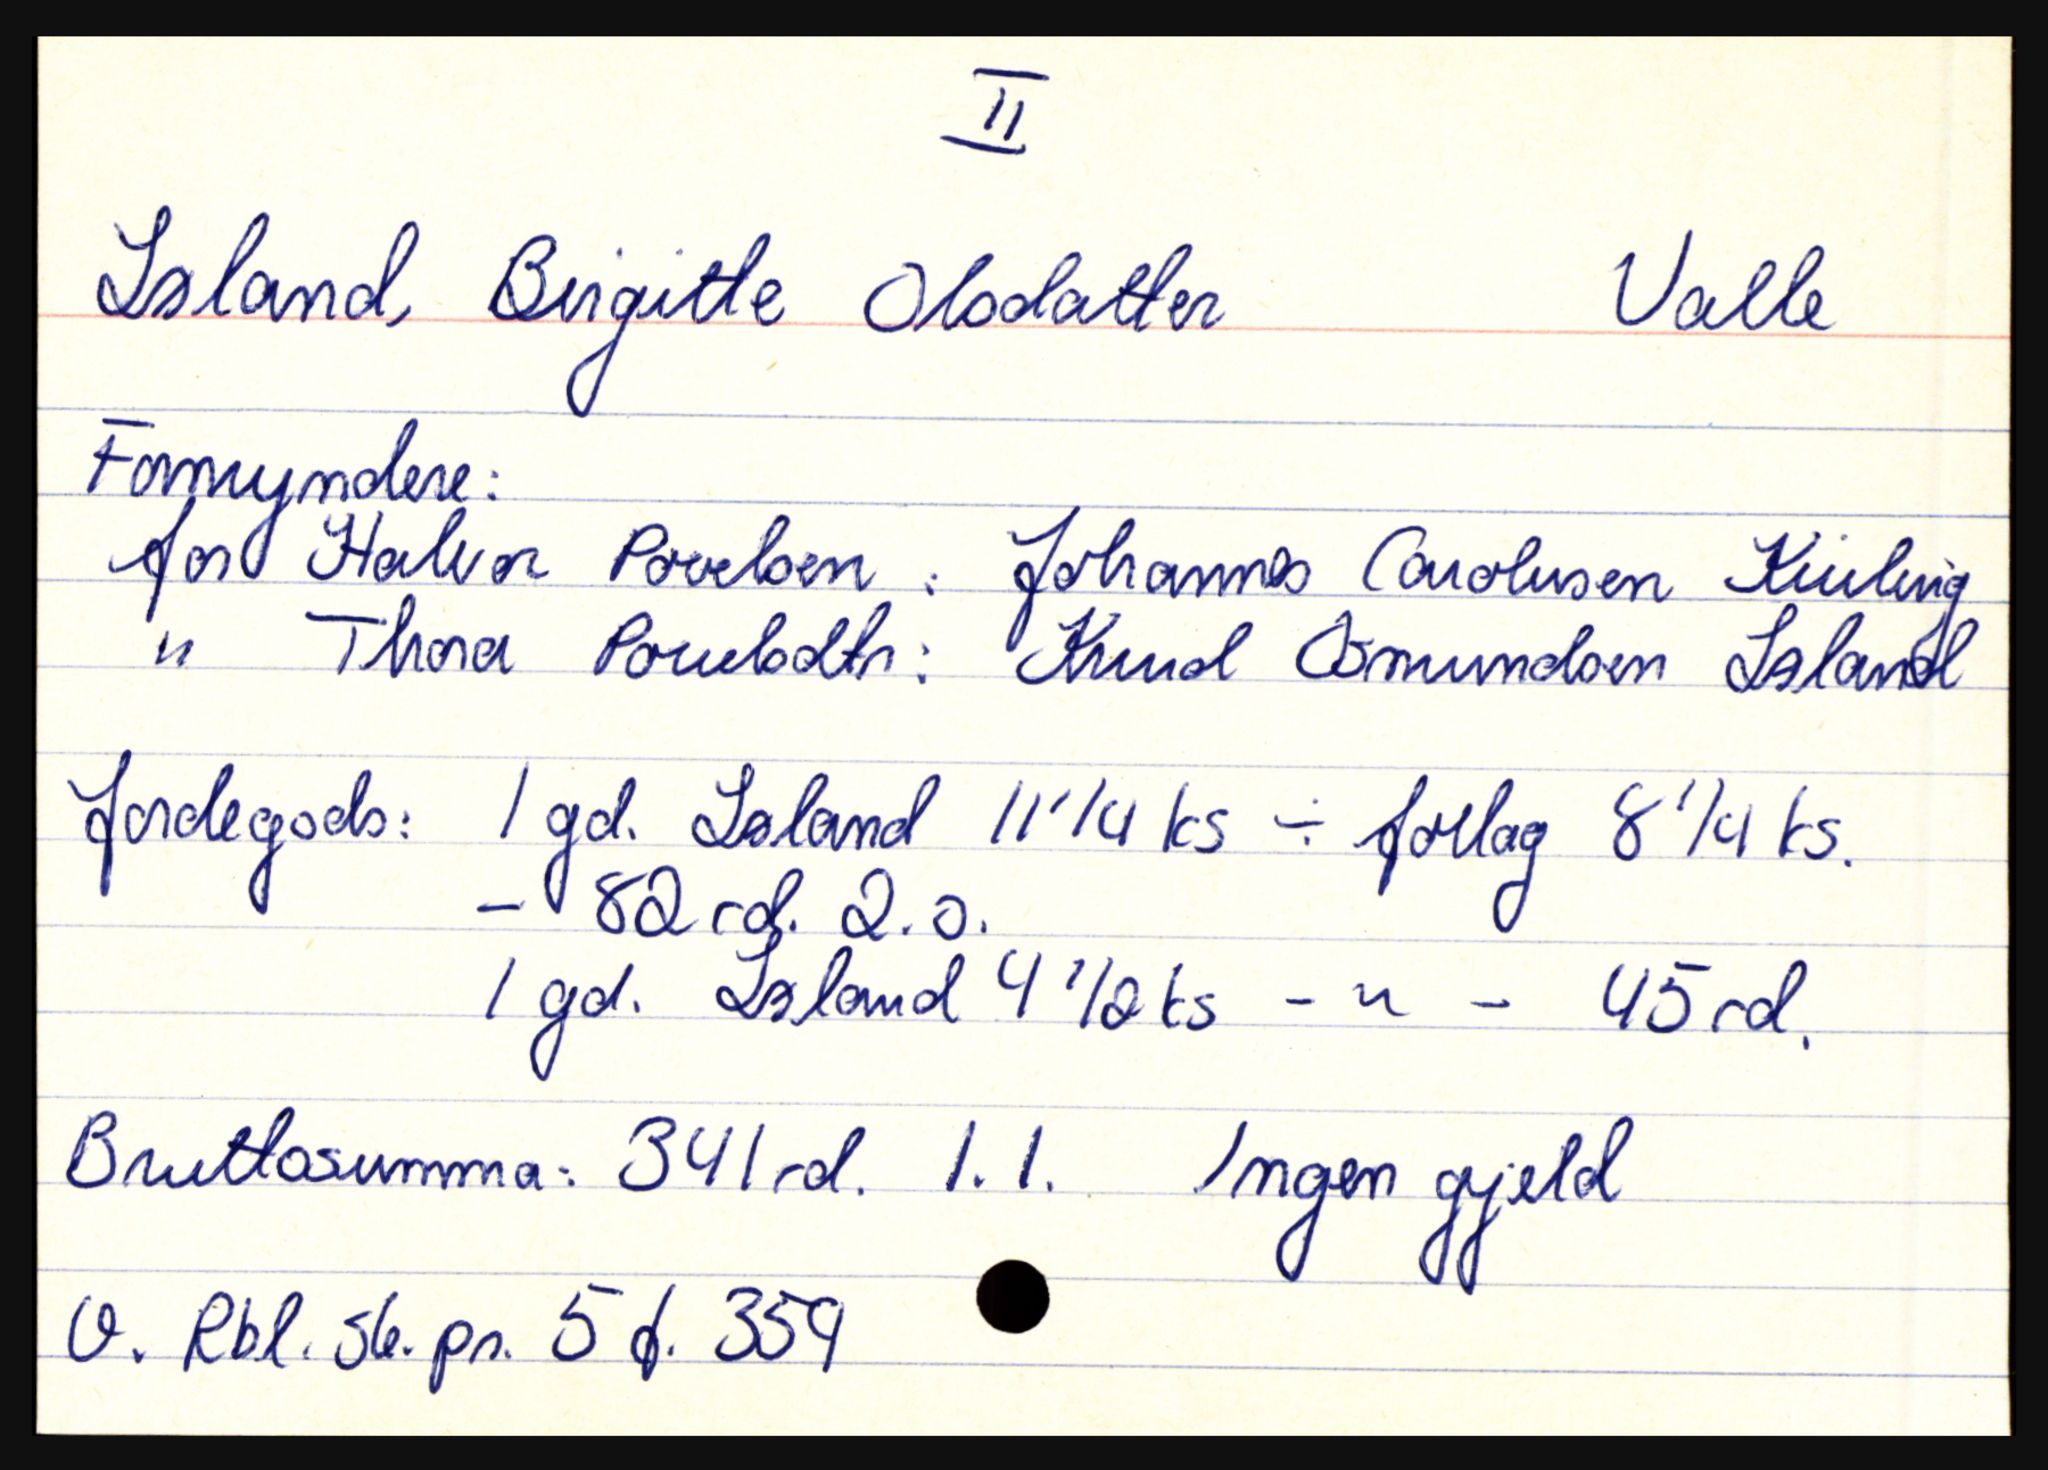 II
Løland, Birgitte Olsdatter Valle
Formyndere:
for Halvor Povelsen : Johannes Carolusen
" Thora Povelsdtr : Knud Osmundsen Løland
Jordegods: 1 gd. Løland 11 1/4 ks ÷ follag 8 1/4 ks.
- 82 rd. 2.0.
1 gd. Løland 4 1/2 ks - " - 45 rd.
Bruttosumma: 341 rd. 1.1. Ingen gjeld
V. Rbl. sk.pr. 5 f. 359